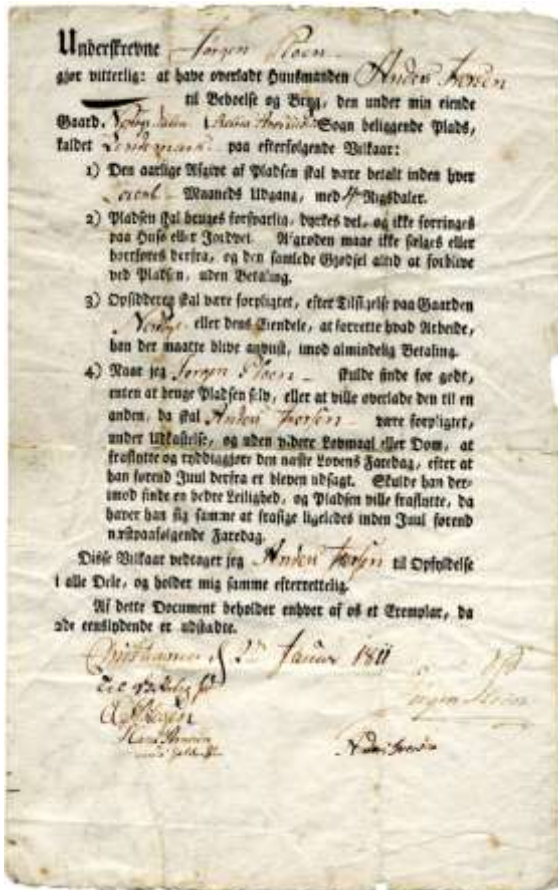 Underskrevne Jørgen Ploen
gjør vitterlig: at have overladt Huusmanden Anders Iversen
til Beboelse og Brug, den under min eiende
Gaard, Sogn beliggende Plads,
kaldet paa efterfølgende Vilkaar:
1) Den aarlige Afgivt af Pladsen skal være betalt inden hver
Maaneds Udgang, med 4 Rigsdaler.
2) Pladsen skal bruges forsvarlig, dyrkes vel, og ikke forringes
paa Huse eller Jordvei. Afgrøden maae ikke sælges eller
bortføres derfra, og den samlede Gjødsel altid at forblive
ved Pladsen, uden Betaling.
3) Opsidderen skal være forpligtet, efter Tilsigelse paa Gaarden
eller dens Eiendele, at forrette hvad Arbeide,
han der maatte blive anviist, imod almindelig Betaling.
4) Naar jeg Jørgen Ploen skulde finde for godt,
enten at bruge Pladsen selv, eller at ville overlade den til en
anden, da skal Anders Iversen være forpligtet,
under Udkastelse, og uden videre Lovmaal eller Dom, at
fraflytte og ryddiggjøre den næste Lovens Faredag, efter at
han forend Juul derfra er bleven udsagt. Skulde han der-
imod finde en bedre Leilighed, og Pladsen ville fraflytte, da
haver han sig samme at frasige ligeledes inden Juul forend
næstpaafølgende Faredag.
Disse Vilkaar vedtager jeg Anders Iversen til Opfyldelse
i alle Dele, og holder mig samme efterrettelig.
Af dette Document beholder enhver af os et Exemplar, da
2de eenslydende er udstædte.
Christiania Januar 1811
Jørgen Ploen
Anders Iversen